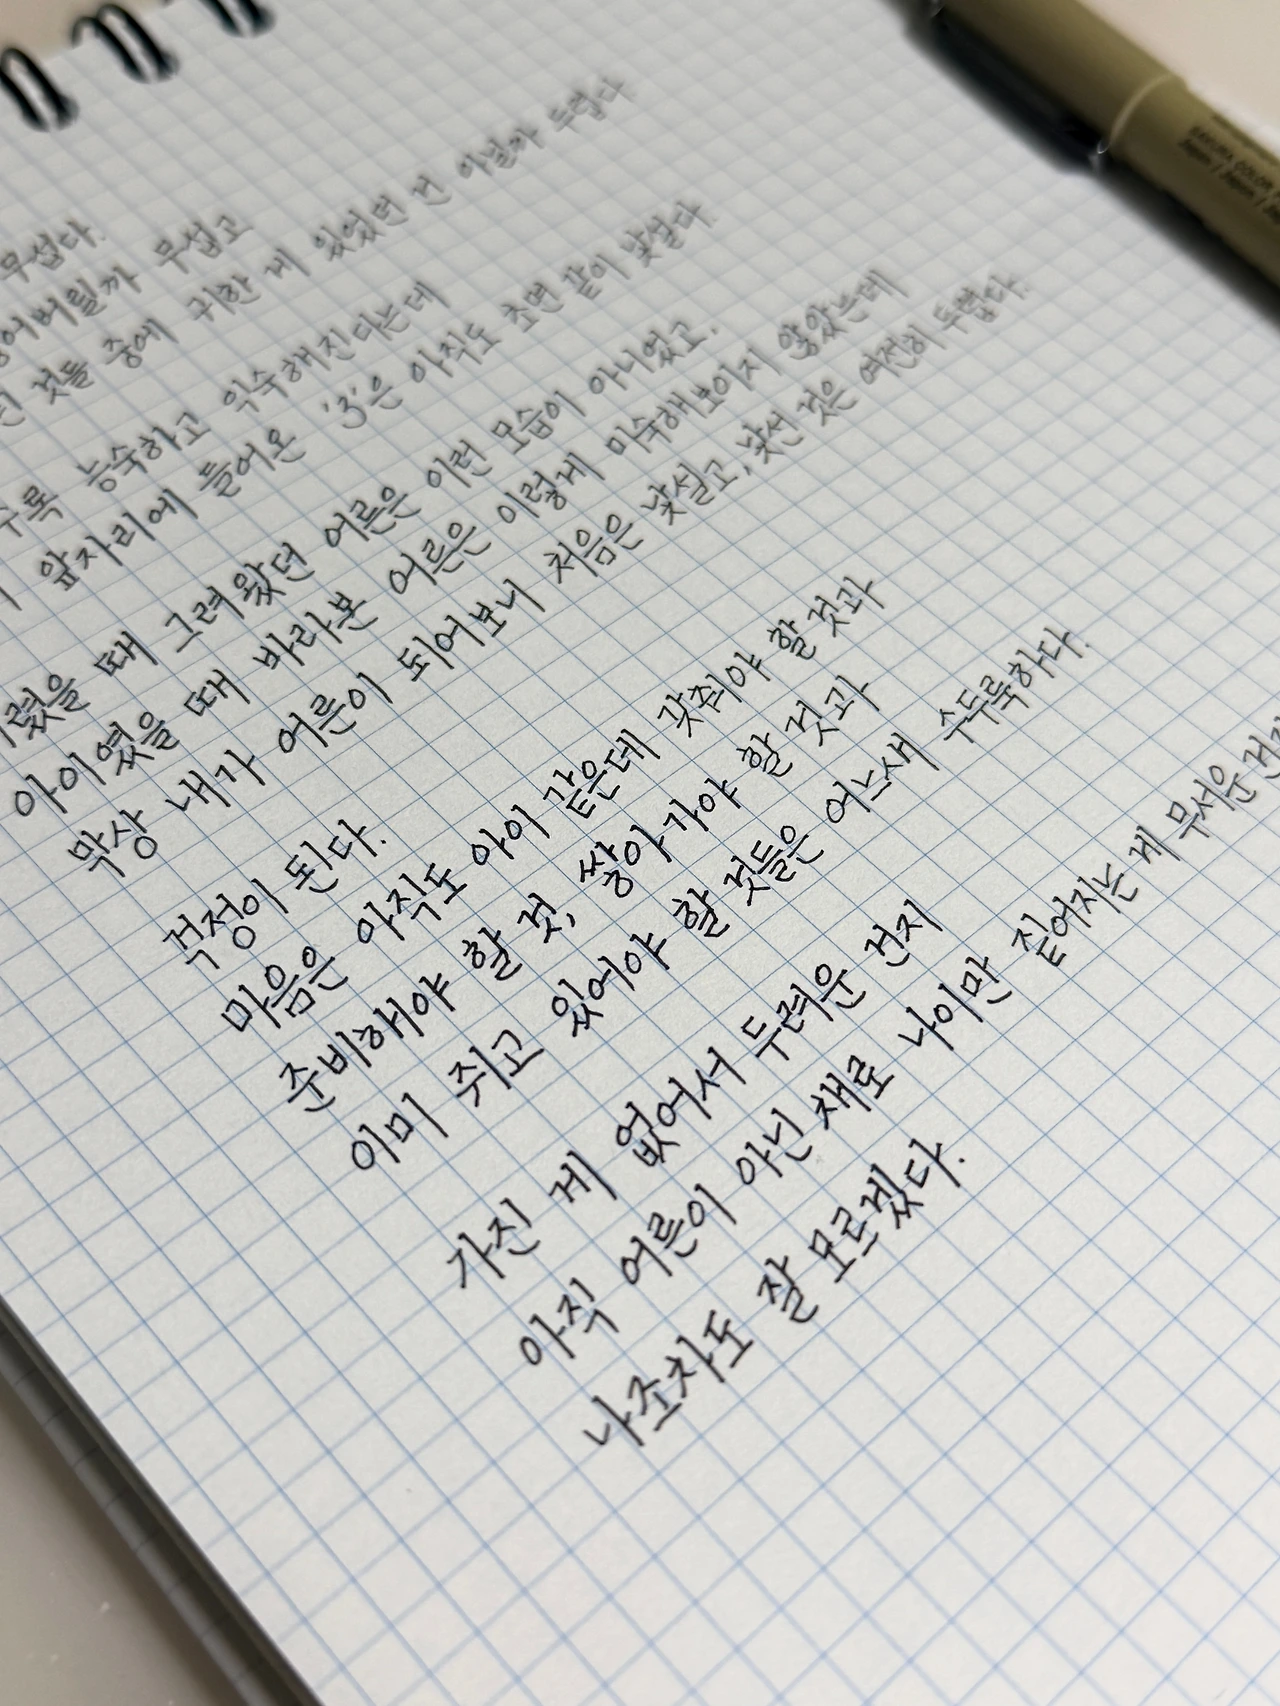 무섭다.
무섭고
것들 중에 귀한 게 있었던 건 아닐까 두렵다.
능숙하고 익숙해진다는데
앞자리에 들어온 '3'은 아직도 초면 같이 낯설다.
때 그려왔던 어른은 이런 모습이 아니었고.
아이였을 때 바라본 어른은 이렇게 미숙해보이지 않았는데
막상 내가 어른이 되어보니 처음은 낯설고, 낯선 것은 여전히 두렵다.
걱정이 된다.
마음은 아직도 아이 같은데 갖춰야 할 것과
준비해야 할 것, 쌓아 가야 할 것과
이미 쥐고 있어야 할 것들은 어느새 수두룩하다.
가진 게 없어서 두려운 건지
아직 어른이 아닌 채로 나이만 짙어지는 게 무서운 건지
나조차도 잘 모르겠다.
SAKURA COLOR